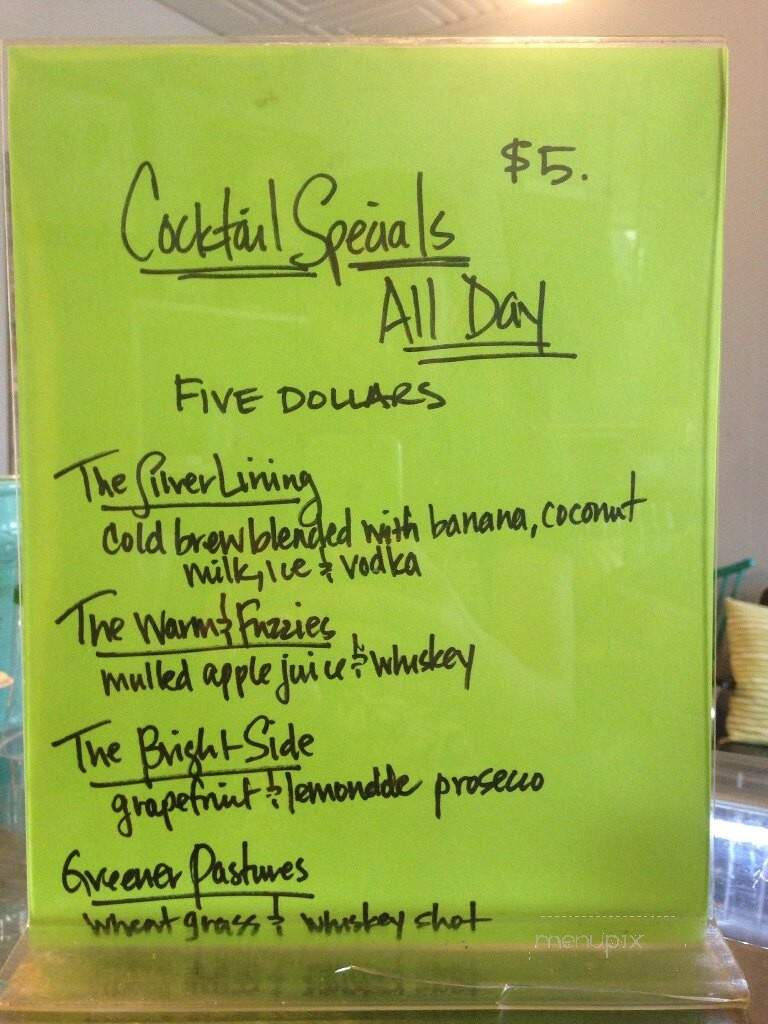 $5.
Cocktail Specials
All Day
FIVE DOLLARS
The Silver Lining
cold brew blended with banana, coconut
milk, ice & vodka
The Warm & Fuzzies
mulled apple juice & whiskey
The Bright Side
grapefruit & lemonade prosecco
Greener Pastures
wheat grass & whiskey shot
menupix